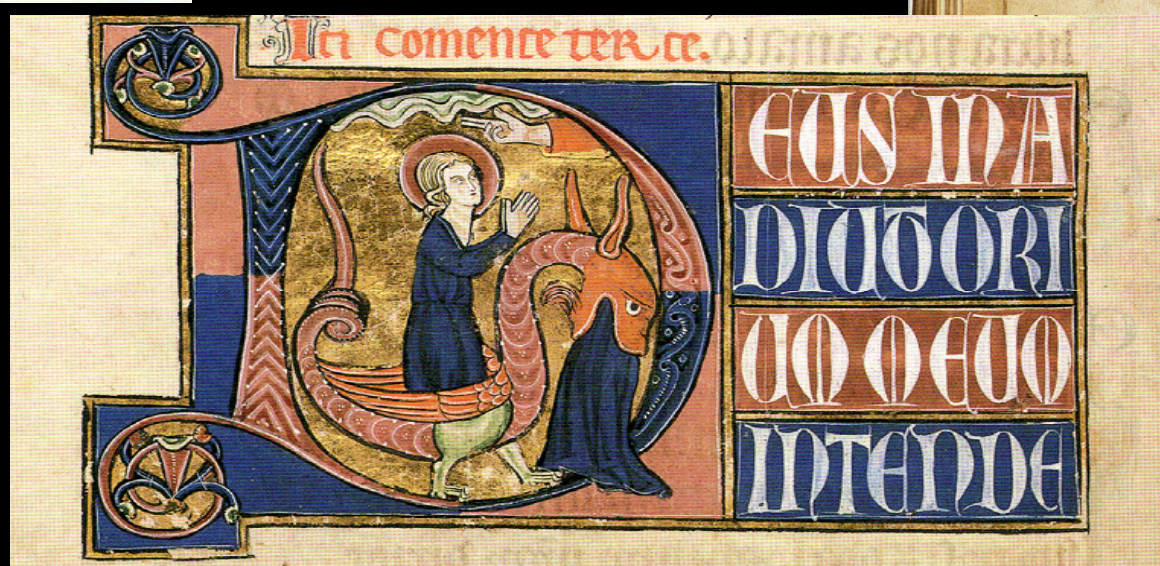 Ici comence terce.
DEUS IN A
DIUTORI
UM MEUM
INTENDE